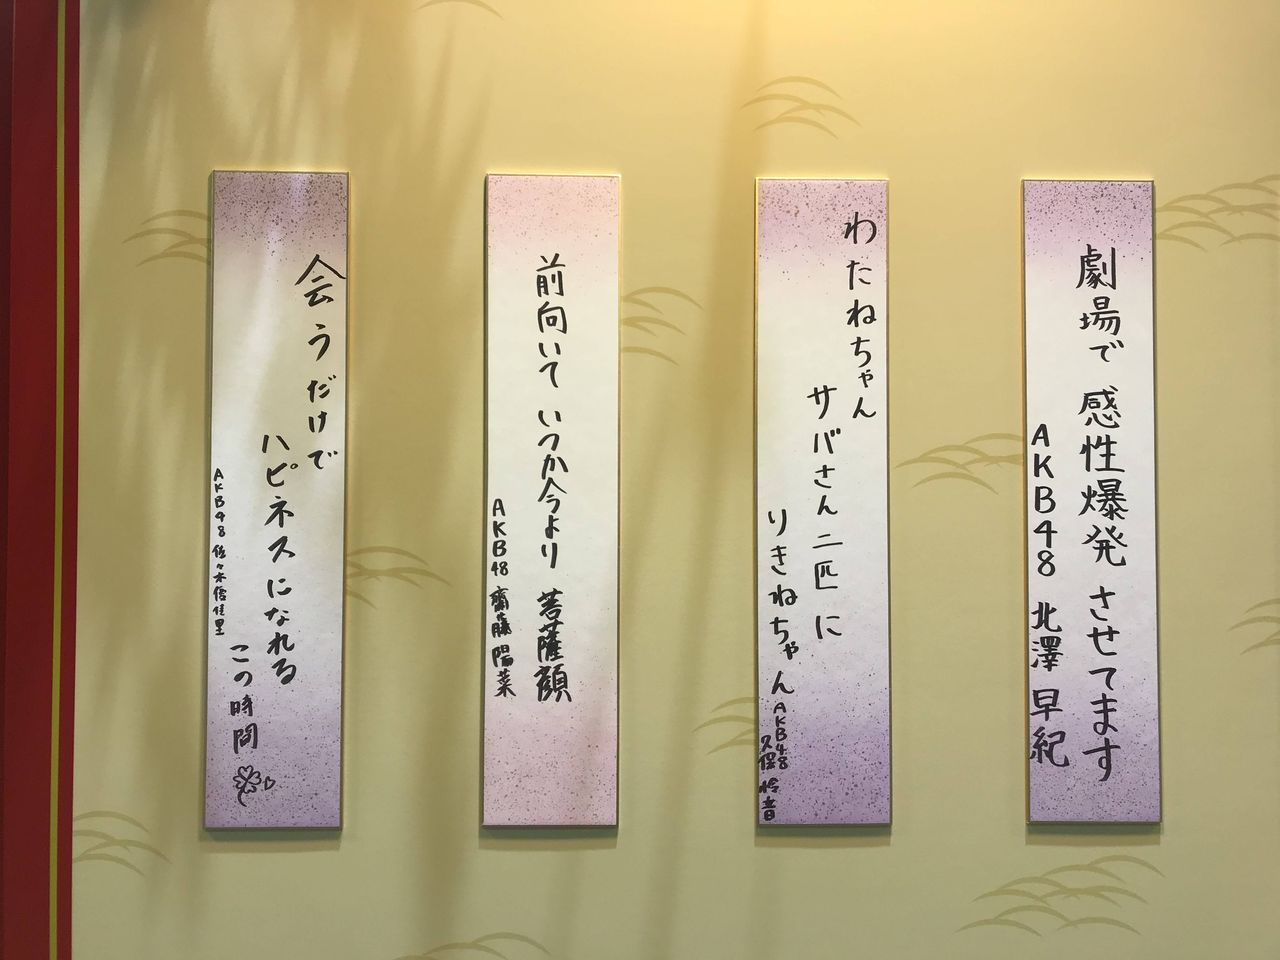 劇場で 感性爆発 させてます
AKB48 北澤 早紀
わたねちゃん
サバさん二匹に
りきねちゃん
AKB48
久保怜音
前向いて いつか今より 菩薩顔
AKB48 齋藤陽菜
会うだけで
ハピネスになれる
この時間
AKB48 佐々木優佳里